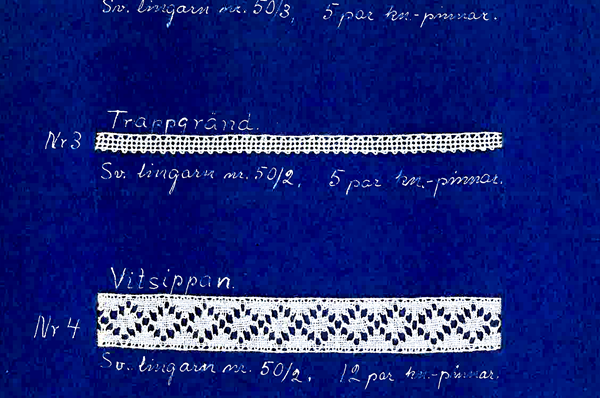 Sv. lingarn nr. 50/3, 5 par kn.-pinnar.
Trappgränd.
Nr 3
Sv. lingarn nr. 50/2. 5 par kn.-pinnar.
Vitsippan.
Nr 4
Sv. lingarn nr. 50/2. 12 par kn.-pinnar.